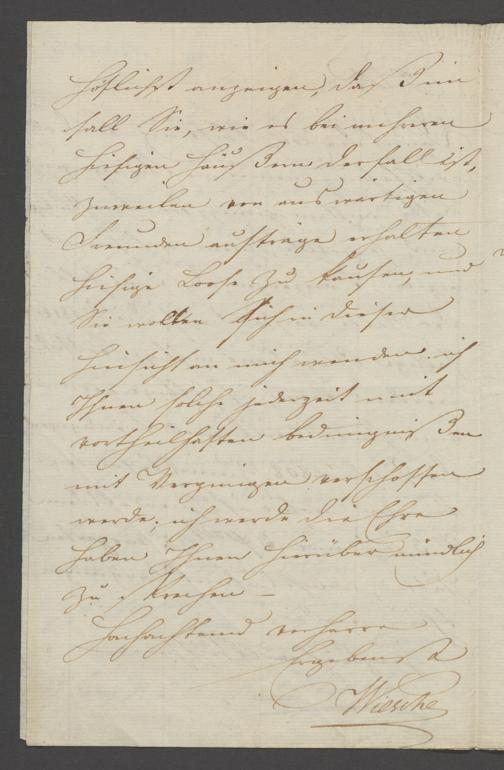 höflichst anzeigen, daß im
fall Sie, wie es bei mehreren
hiesigen Häußern der fall ist,
zuweilen von auswärtigen
Freunden aufträge erhalten
hiesige Loose zu kaufen, und
Sie wollten sich in dieser
hinsicht an mich wenden. ich
Ihnen solche jederzeit mit
vortheilhaften bedingnißen
mit Vergnügen verschaffen
werde. ich werde die Ehre
haben Ihnen hierüber mündlich
zu sprechen –
Hochachtend verharre
Ergebenst
Wiesche